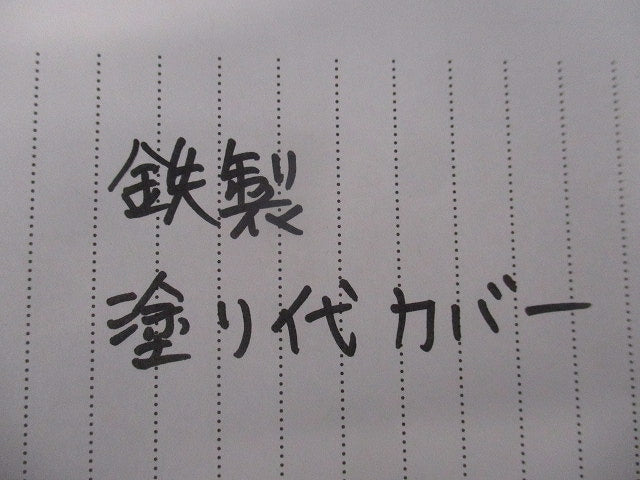 鉄製
塗り代カバー